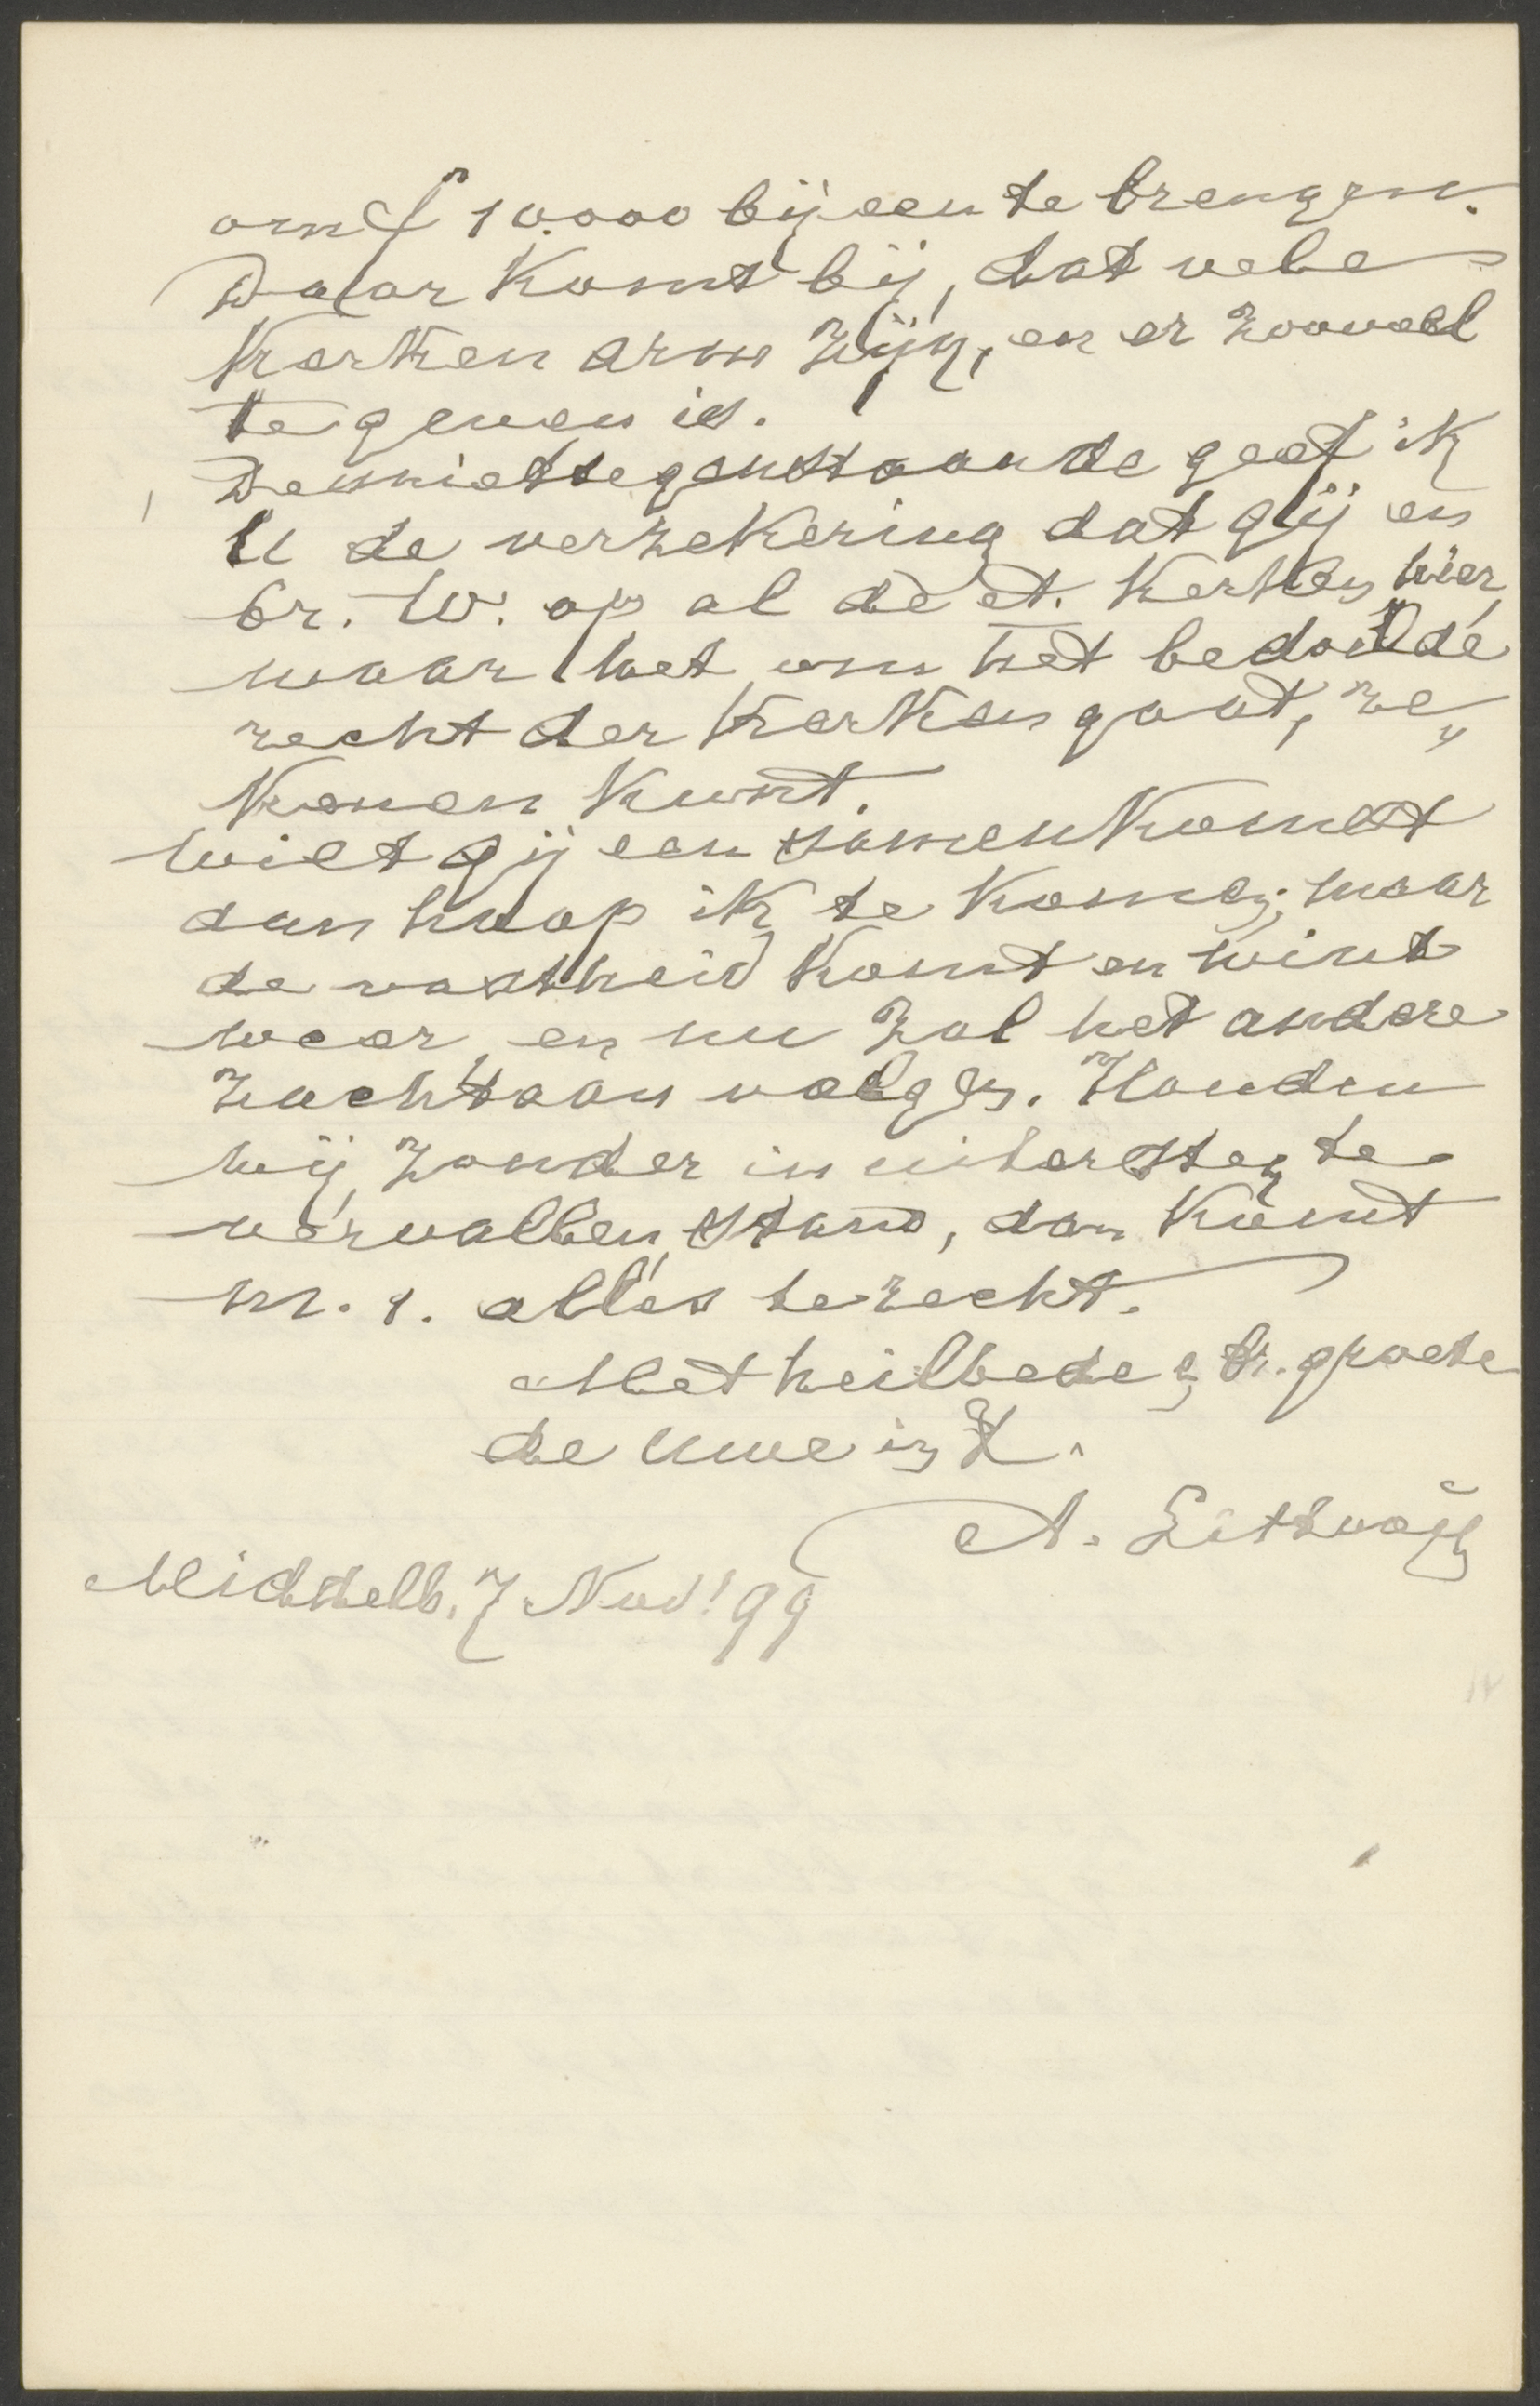 om f 10.000 bijeen te brengen.
Daar komt bij, dat vele
kerken arm zijn, en er zooveel
te geven is.
Desniettegenstaande geef ik
U de verzekering dat gij en
br. W. op al de kerken hier,
waar het om het bedoelde
recht der kerken gaat, re„
kenen kunt.
Wilt gij een samenkomst
dan hoop ik te komen; maar
de vastheid komt en wint
weer, en nu zal het andere
zachtaan volgen. Houden
wij zonder in uitersten te
vervallen, stand, dan komt
m. i. alles terecht.
Met heilbede en br. groete
de Uwe in X.
A. Littooij
Middelb. 7 Nov! 99